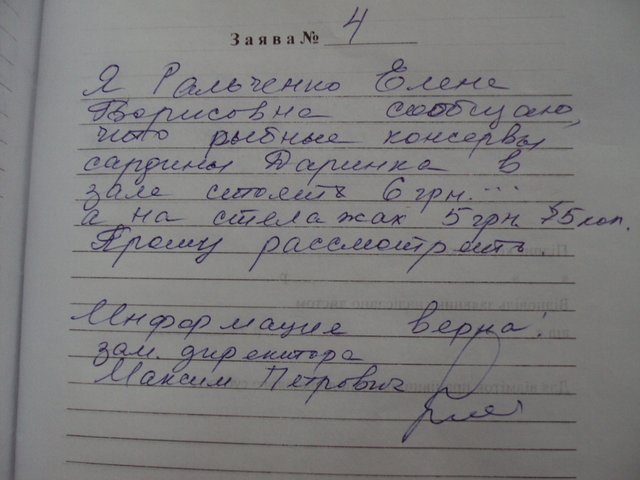 Заява № 4
Я Ральченко Елена
Борисовна сообщаю,
что рыбные консервы
сардины Даринка в
зале стоять 6 грн....
а на стелажах 5 грн 75 коп.
Прошу рассмотреть.
Информация верна!
зам. директора
Максим Петрович